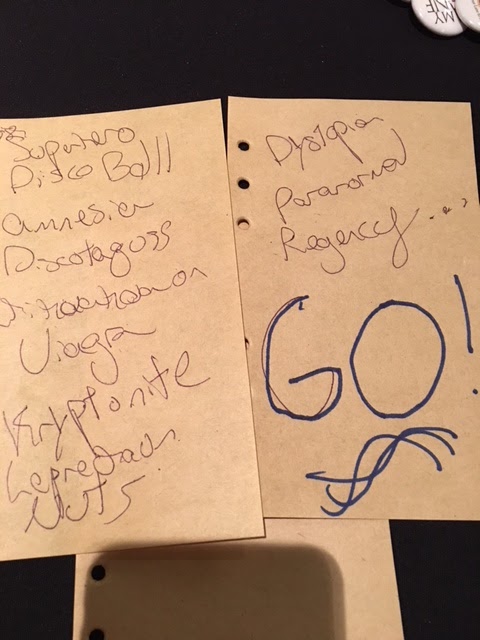 Superhero
Disco Ball
amnesia
Viagra
Kryptonite
Leprechaun
Nuts
Dystopian
Paranormal
Regency...?
GO!
MY